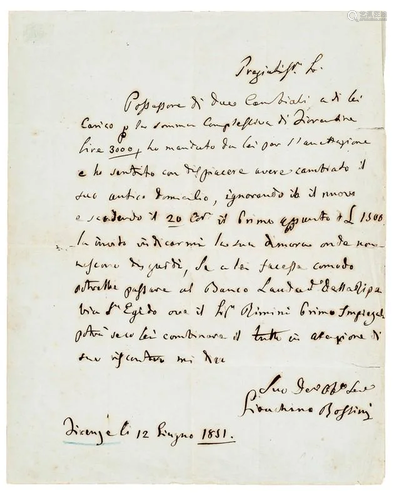 Pregiatis. Sr.
Possessore di due Cambiali, a di lei
Carico p la somma Complessiva di Fiorentine
lire 3000, ho mandato da lei per l'accettazione
e ho sentito con dispiacere avere cambiato il
suo antico domicilio, ignorando io il nuovo
e scadendo il 20 Cor. il primo appunto di £ 1500
la invito indicarmi la sua dimora onde non
nascano disguidi, Se a lei facesse comodo
potrebbe passare al Banco
via S. Egidio ove il Sr. Rimini primo Impiegato
potrà seco lei combinare il tutto in attenzione di
suo riscontro mi dico
Suo Dev. Obb. Ser.
Gioachino Rossini
Firenze li 12 Giugno 1851.